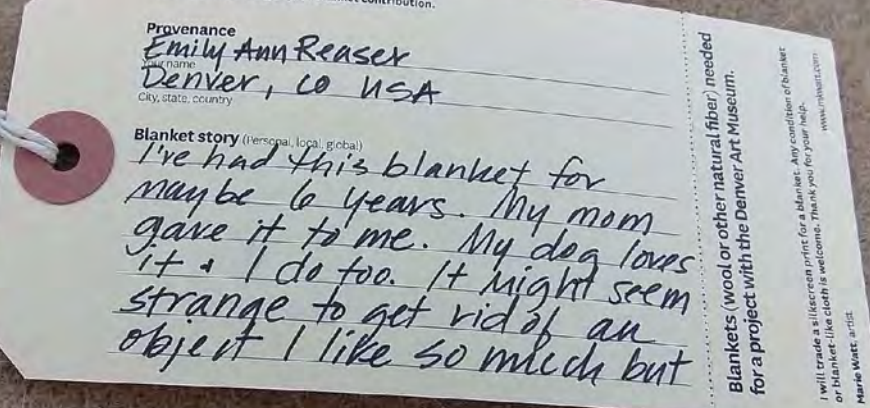 contribution.
Provenance
Emily Ann Reaser
Your name
Denver, CO USA
City, state, country
Blanket story (Personal, local, global)
I've had this blanket for
maybe 6 years. My mom
gave it to me. My dog loves
it & I do too. It might seem
strange to get rid of an
object I like so much but
Blankets (wool or other natural fiber) needed
for a project with the Denver Art Museum.
I will trade a silkscreen print for a blanket. Any condition of blanket
or blanket-like cloth is welcome. Thank you for your help.
Marie Watt, artist
www.mkwatt.com